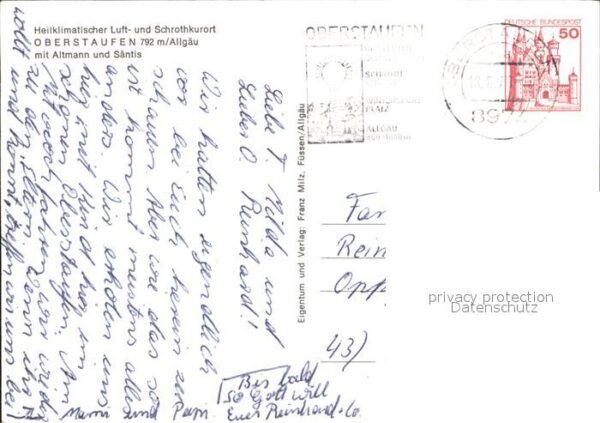 Heilklimatischer Luft- und Schrothkurort
OBERSTAUFEN 792 m/Allgäu
mit Altmann und Säntis
OBERSTAUFEN
SCHROTH
PLATZ
ALLGÄU
DEUTSCHE BUNDESPOST
50
897
Eigentum und Verlag: Franz Milz, Füssen/Allgäu
Liebe T. Hilda und
Lieber O. Reinhard!
Wir hatten eigendlich
vor bei Euch herein zu
schauen. Aber wie das so
ist kommt meistens alles
anders. Wir erholen uns
hier mit Kind
Oberstaufen. Am
fahren wir wieder
zu den Eltern. Wenn Ihr
wollt und könnt, treffen wir uns bei
Mami und Papi.
Bis bald
so Gott will
Euer Reinhard + Co.
Fam
Rein
Opp
43)
privacy protection
Datenschutz